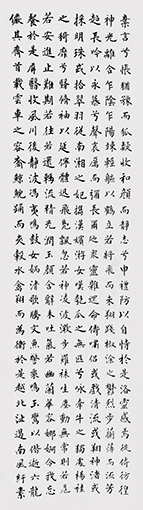 棄言兮悵猶豫而狐疑收和顏而靜志兮申禮防以自持於是洛靈感焉徙倚彷徨
神光離合乍陰乍陽竦輕軀以鶴立若將飛而未翔踐椒塗之郁烈步蘅薄而流芳
超長吟以永慕兮聲哀厲而彌長爾迺衆靈雜遝命儔嘯侶或戲清流或翔神渚或
採明珠或拾翠羽從南湘之二妃攜漢濱之游女歎匏瓜之無匹兮詠牽牛之獨處揚輕袿
之猗靡兮翳脩袖以延佇體迅飛鳧飄忽若神凌波微步羅襪生塵動無常則若危
若安進止難期若往若還轉眄流精光潤玉顏含辭未吐氣若幽蘭華容婀娜令我忘
餐於是屏翳收風川后靜波馮夷鳴鼓女媧清歌騰文魚以警乘鳴玉鸞以偕逝六龍
儼其齊首載雲車之容裔鯨鯢踊而夾轂水禽翔而爲衛於是越北沚過南岡紆素